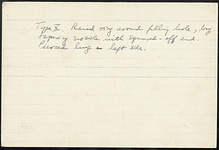 Type X. Raised ring around filling hole; long
tapering nozzle with squared-off end.
Pierced lug on left side.